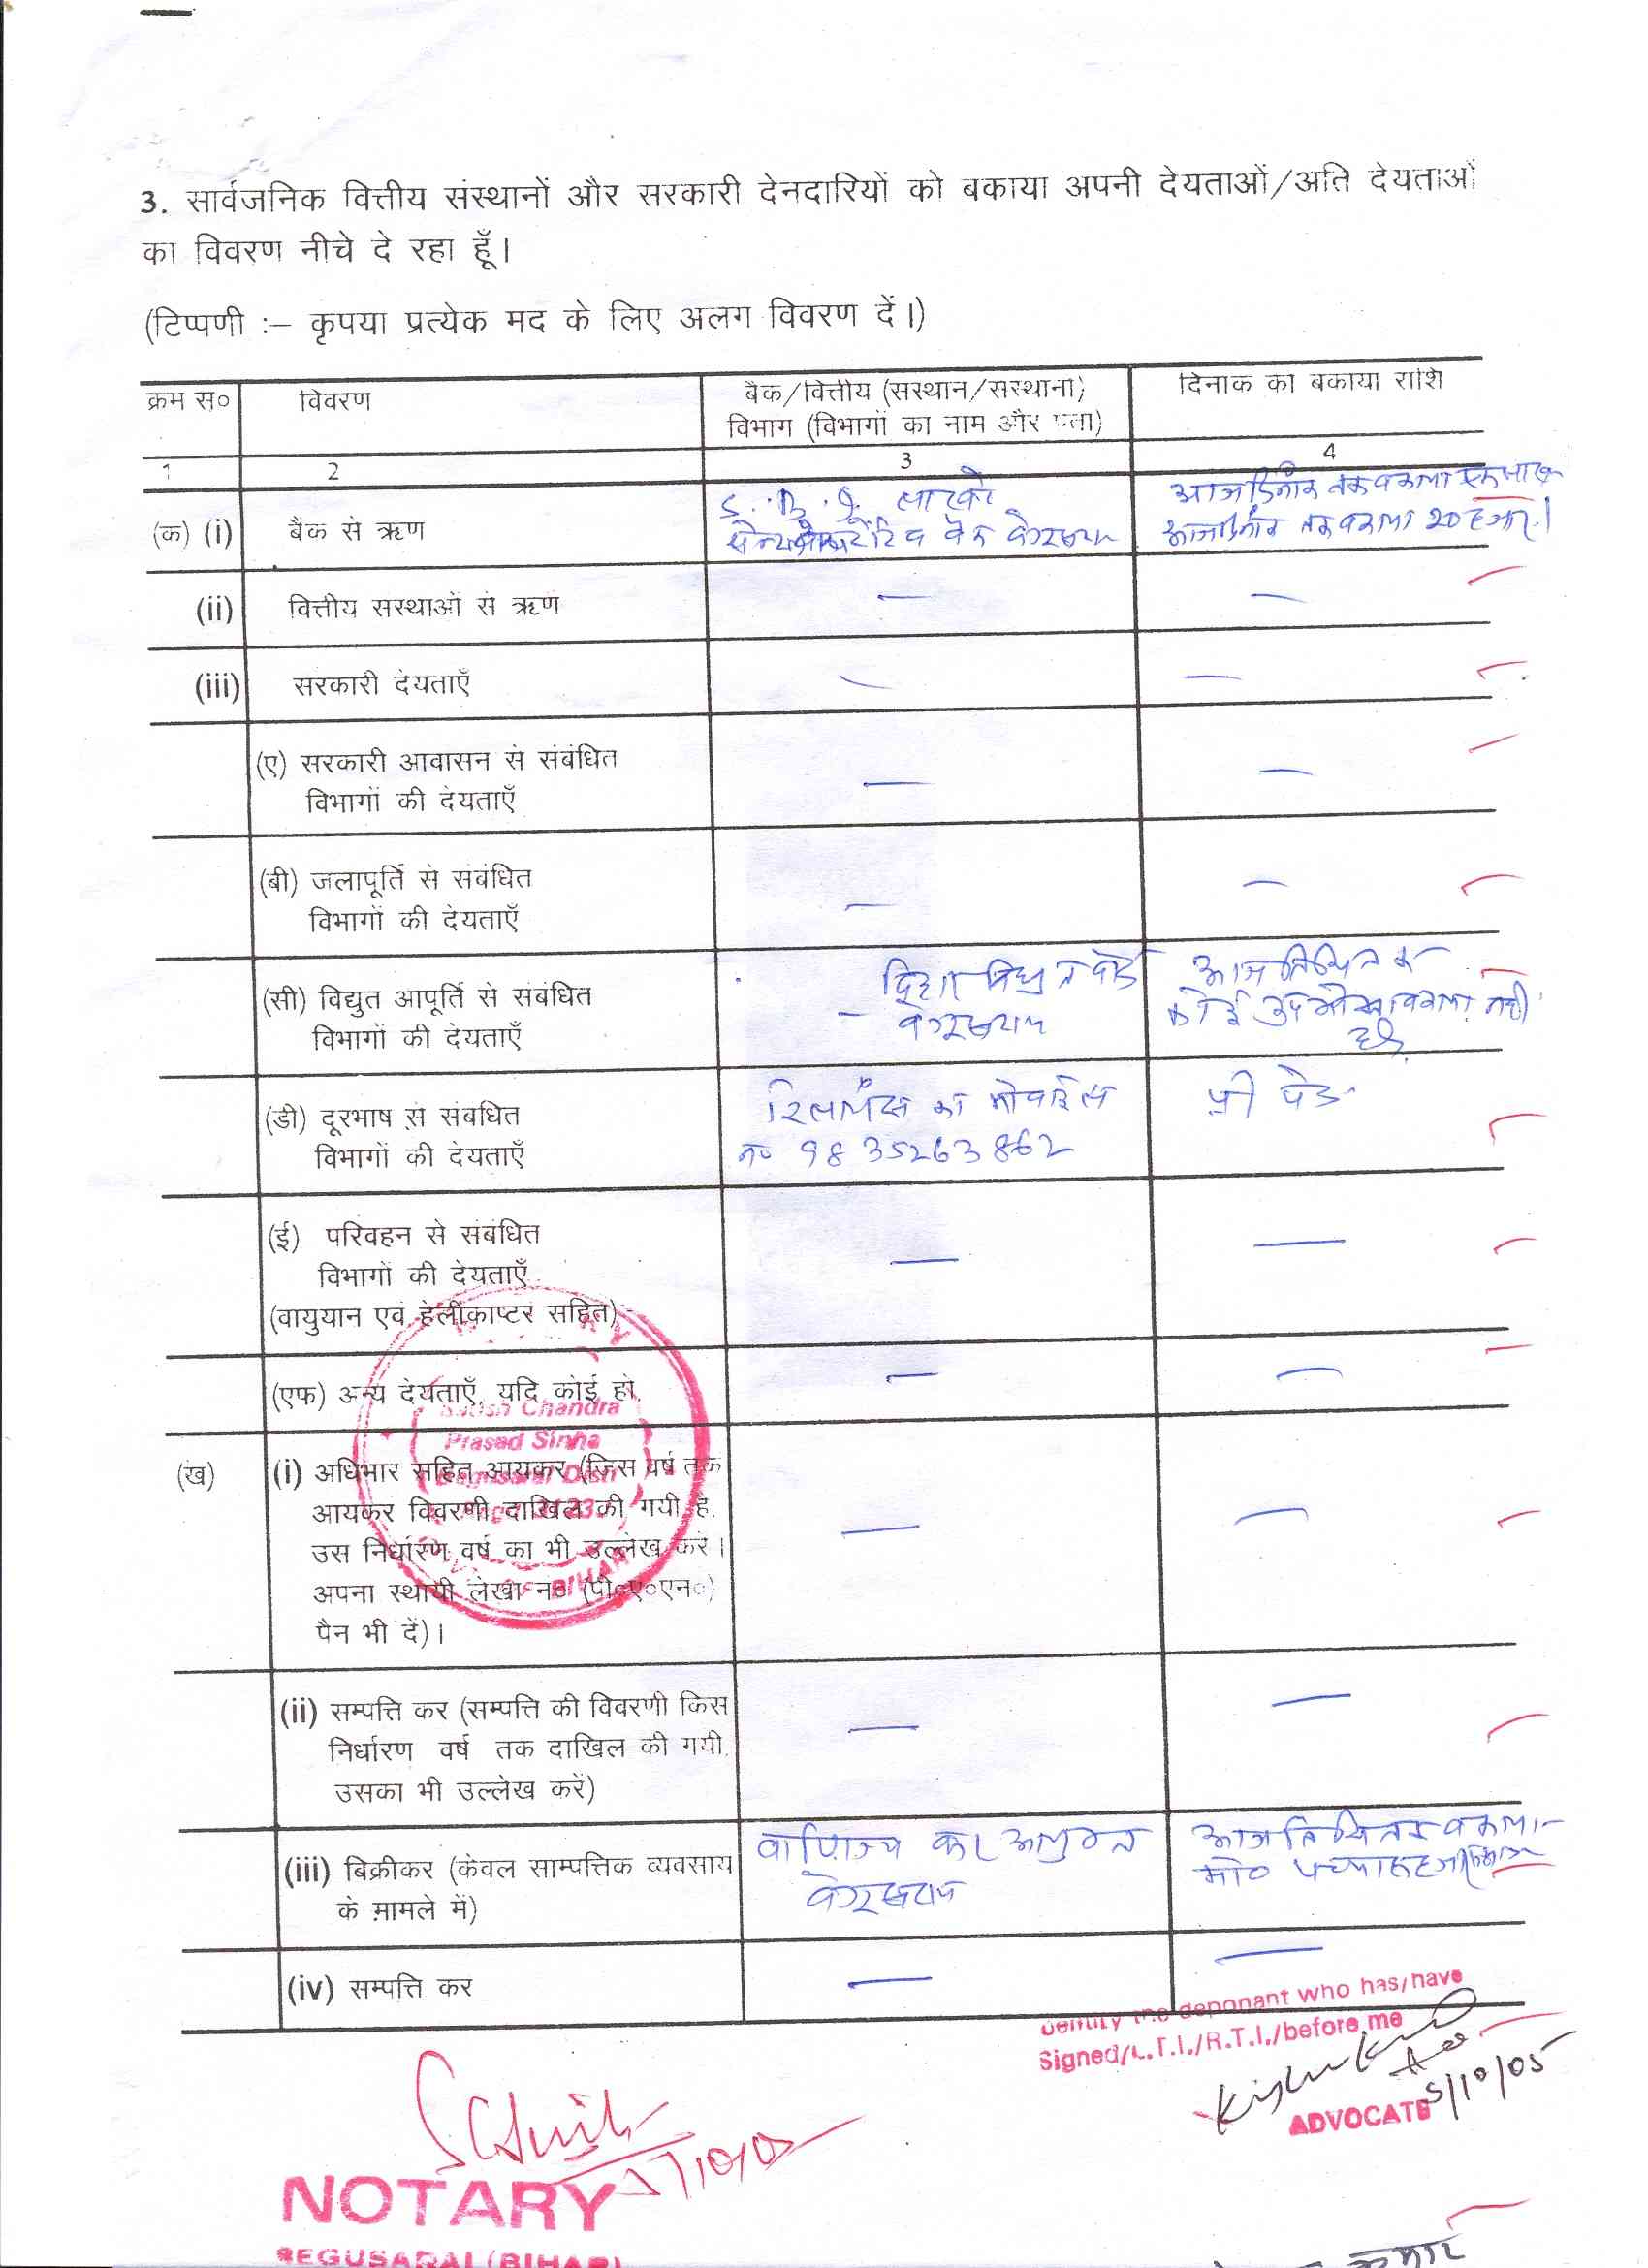 3. सार्वजनिक वित्तीय संस्थानों और सरकारी देनदारियों को बकाया अपनी देयताओं/अति देयताओं
का विवरण नीचे दे रहा हूँ।
(टिप्पणी :– कृपया प्रत्येक मद के लिए अलग विवरण दें।)
क्रम स० विवरण बैंक/वित्तीय (सस्थान/सस्थानों) दिनांक को बकाया राशि
विभाग (विभागों का नाम और पता)
1 2 3 4
(क) (i) बैंक से ऋण
S.B.I.
आज दिनांक तक बकाया
आज दिनांक तक बकाया 20 हजार।
(ii) वित्तीय सस्थाओं से ऋण — —
(iii) सरकारी देयताएँ — —
(ए) सरकारी आवासन से संबंधित — —
विभागों की देयताएँ
(बी) जलापूर्ति से संबंधित — —
विभागों की देयताएँ
(सी) विद्युत आपूर्ति से संबंधित
विभागों की देयताएँ
विद्युत बोर्ड
आज तिथि तक
कोई बकाया नहीं
है
(डी) दूरभाष से संबधित
विभागों की देयताएँ
रिलायंस का मोबाईल
न० 9835263862
प्री पेड
(ई) परिवहन से संबंधित — —
विभागों की देयताएँ
(वायुयान एवं हेलीकाप्टर सहित)
(एफ) अन्य देयताएँ, यदि कोई हो, — —
(ख) (i) अधिभार सहित आयकर (जिस वर्ष तक — —
आयकर विवरणी दाखिल की गयी है,
उस निर्धारण वर्ष का भी उल्लेख करें।
अपना स्थायी लेखा न० (पी०ए०एन०)
पैन भी दें)।
Satish Chandra
Prasad Sinha
BIHAR
(ii) सम्पत्ति कर (सम्पत्ति की विवरणी किस — —
निर्धारण वर्ष तक दाखिल की गयी,
उसका भी उल्लेख करें)
(iii) बिक्रीकर (केवल साम्पत्तिक व्यवसाय
के मामले में)
वाणिज्य कर
आज तिथि तक बकाया
मो०
(iv) सम्पत्ति कर — —
the deponant who has/have
Signed/L.T.I./R.T.I./before me
5/10/05
ADVOCATE
NOTARY
BEGUSARAI (BIHAR)
कुमार